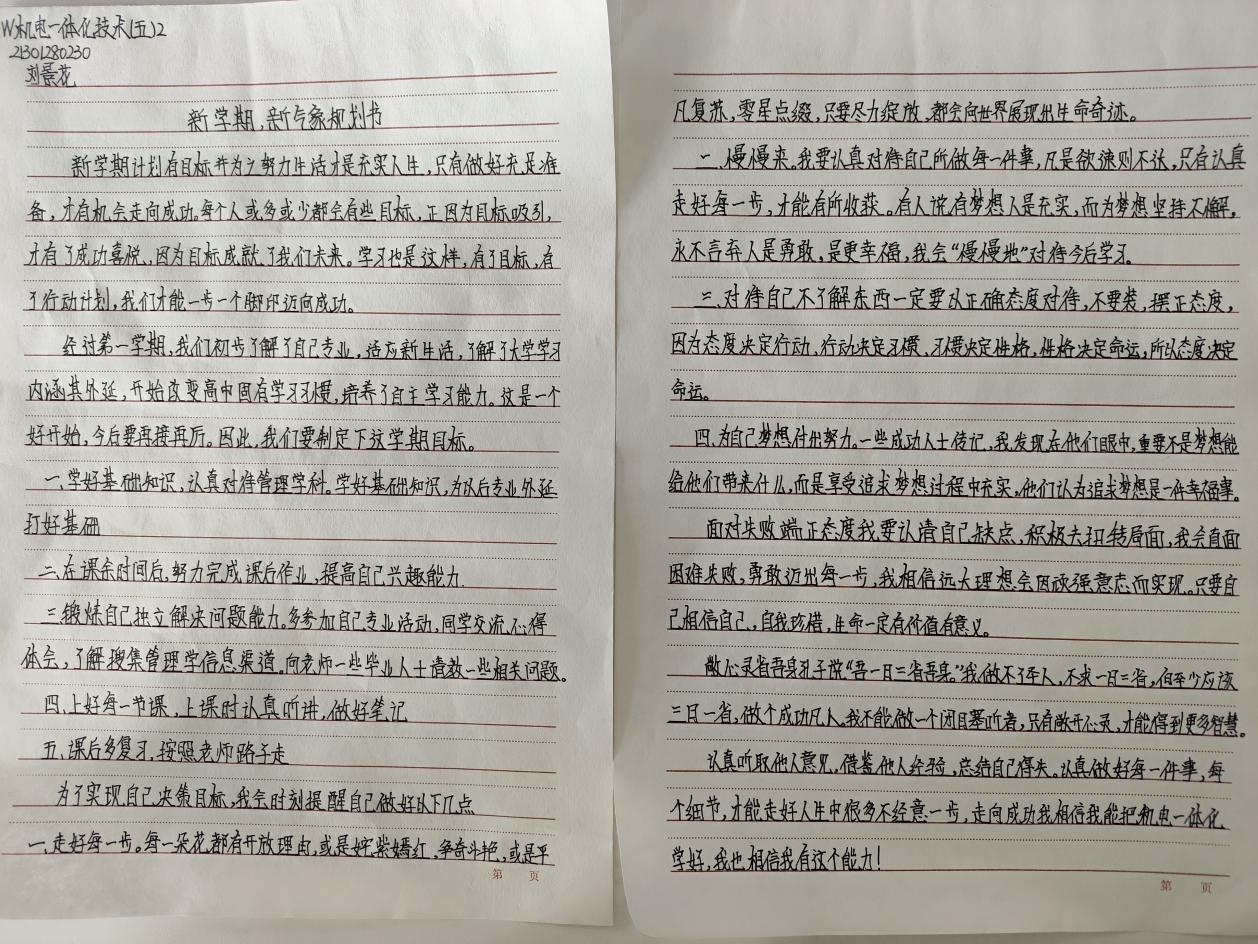 W机电一体化技术(五)2
21301280230
刘景花
新学期,新气象规划书
新学期计划有目标并为之努力生活才是充实人生,只有做好充足准
备,才有机会走向成功。每个人或多或少都会有些目标,正因为目标吸引,
才有了成功喜悦,因为目标成就了我们未来。学习也是这样,有了目标,有
了行动计划,我们才能一步一个脚印迈向成功。
经过第一学期,我们初步了解了自己专业,适应新生活,了解了大学学习
内涵其外延,开始改变高中固有学习习惯,培养了自主学习能力。这是一个
好开始,今后要再接再厉。因此,我们要制定下这学期目标。
一、学好基础知识,认真对待管理学科。学好基础知识,为以后专业外延
打好基础
二、在课余时间后,努力完成课后作业,提高自己兴趣能力.
三.锻炼自己独立解决问题能力。多参加自己专业活动,同学交流心得
体会,了解搜集管理学信息渠道。向老师一些毕业人士请教一些相关问题。
四.上好每一节课,上课时认真听讲,做好笔记
五.课后多复习,按照老师路子走
为了实现自己决策目标,我会时刻提醒自己做好以下几点
一、走好每一步。每一朵花都有开放理由,或是姹紫嫣红、争奇斗艳,或是平
第 页
凡复苏,零星点缀,只要尽力绽放,都会向世界展现出生命奇迹。
二.慢慢来。我要认真对待自己所做每一件事,凡是欲速则不达,只有认真
走好每一步,才能有所收获。有人说有梦想人是充实,而为梦想坚持不懈,
永不言弃人是勇敢,是更幸福,我会“慢慢地”对待今后学习。
三.对待自己不了解东西一定要以正确态度对待,不要装,摆正态度,
因为态度决定行动,行动决定习惯,习惯决定性格,性格决定命运,所以态度决定
命运。
四.为自己梦想付出努力。一些成功人士传记,我发现在他们眼中,重要不是梦想能
给他们带来什么,而是享受追求梦想过程中充实,他们认为追求梦想是一件幸福事。
面对失败端正态度我要认清自己缺点,积极去扭转局面,我会直面
困难失败,勇敢迈出每一步,我相信远大理想会因顽强意志而实现。只要自
己相信自己,自我珍惜,生命一定有价值有意义。
敞心灵省吾身孔子说“吾一日三省吾身。”我做不了圣人,不求一日三省,但至少应该
三日一省,做个成功凡人。我不能做一个闭目塞听者,只有敞开心灵,才能得到更多智慧。
认真听取他人意见,借鉴他人经验,总结自己得失。认真做好每一件事,每
个细节,才能走好人生中很多不经意一步,走向成功我相信我能把机电一体化
学好,我也相信我有这个能力!
第 页